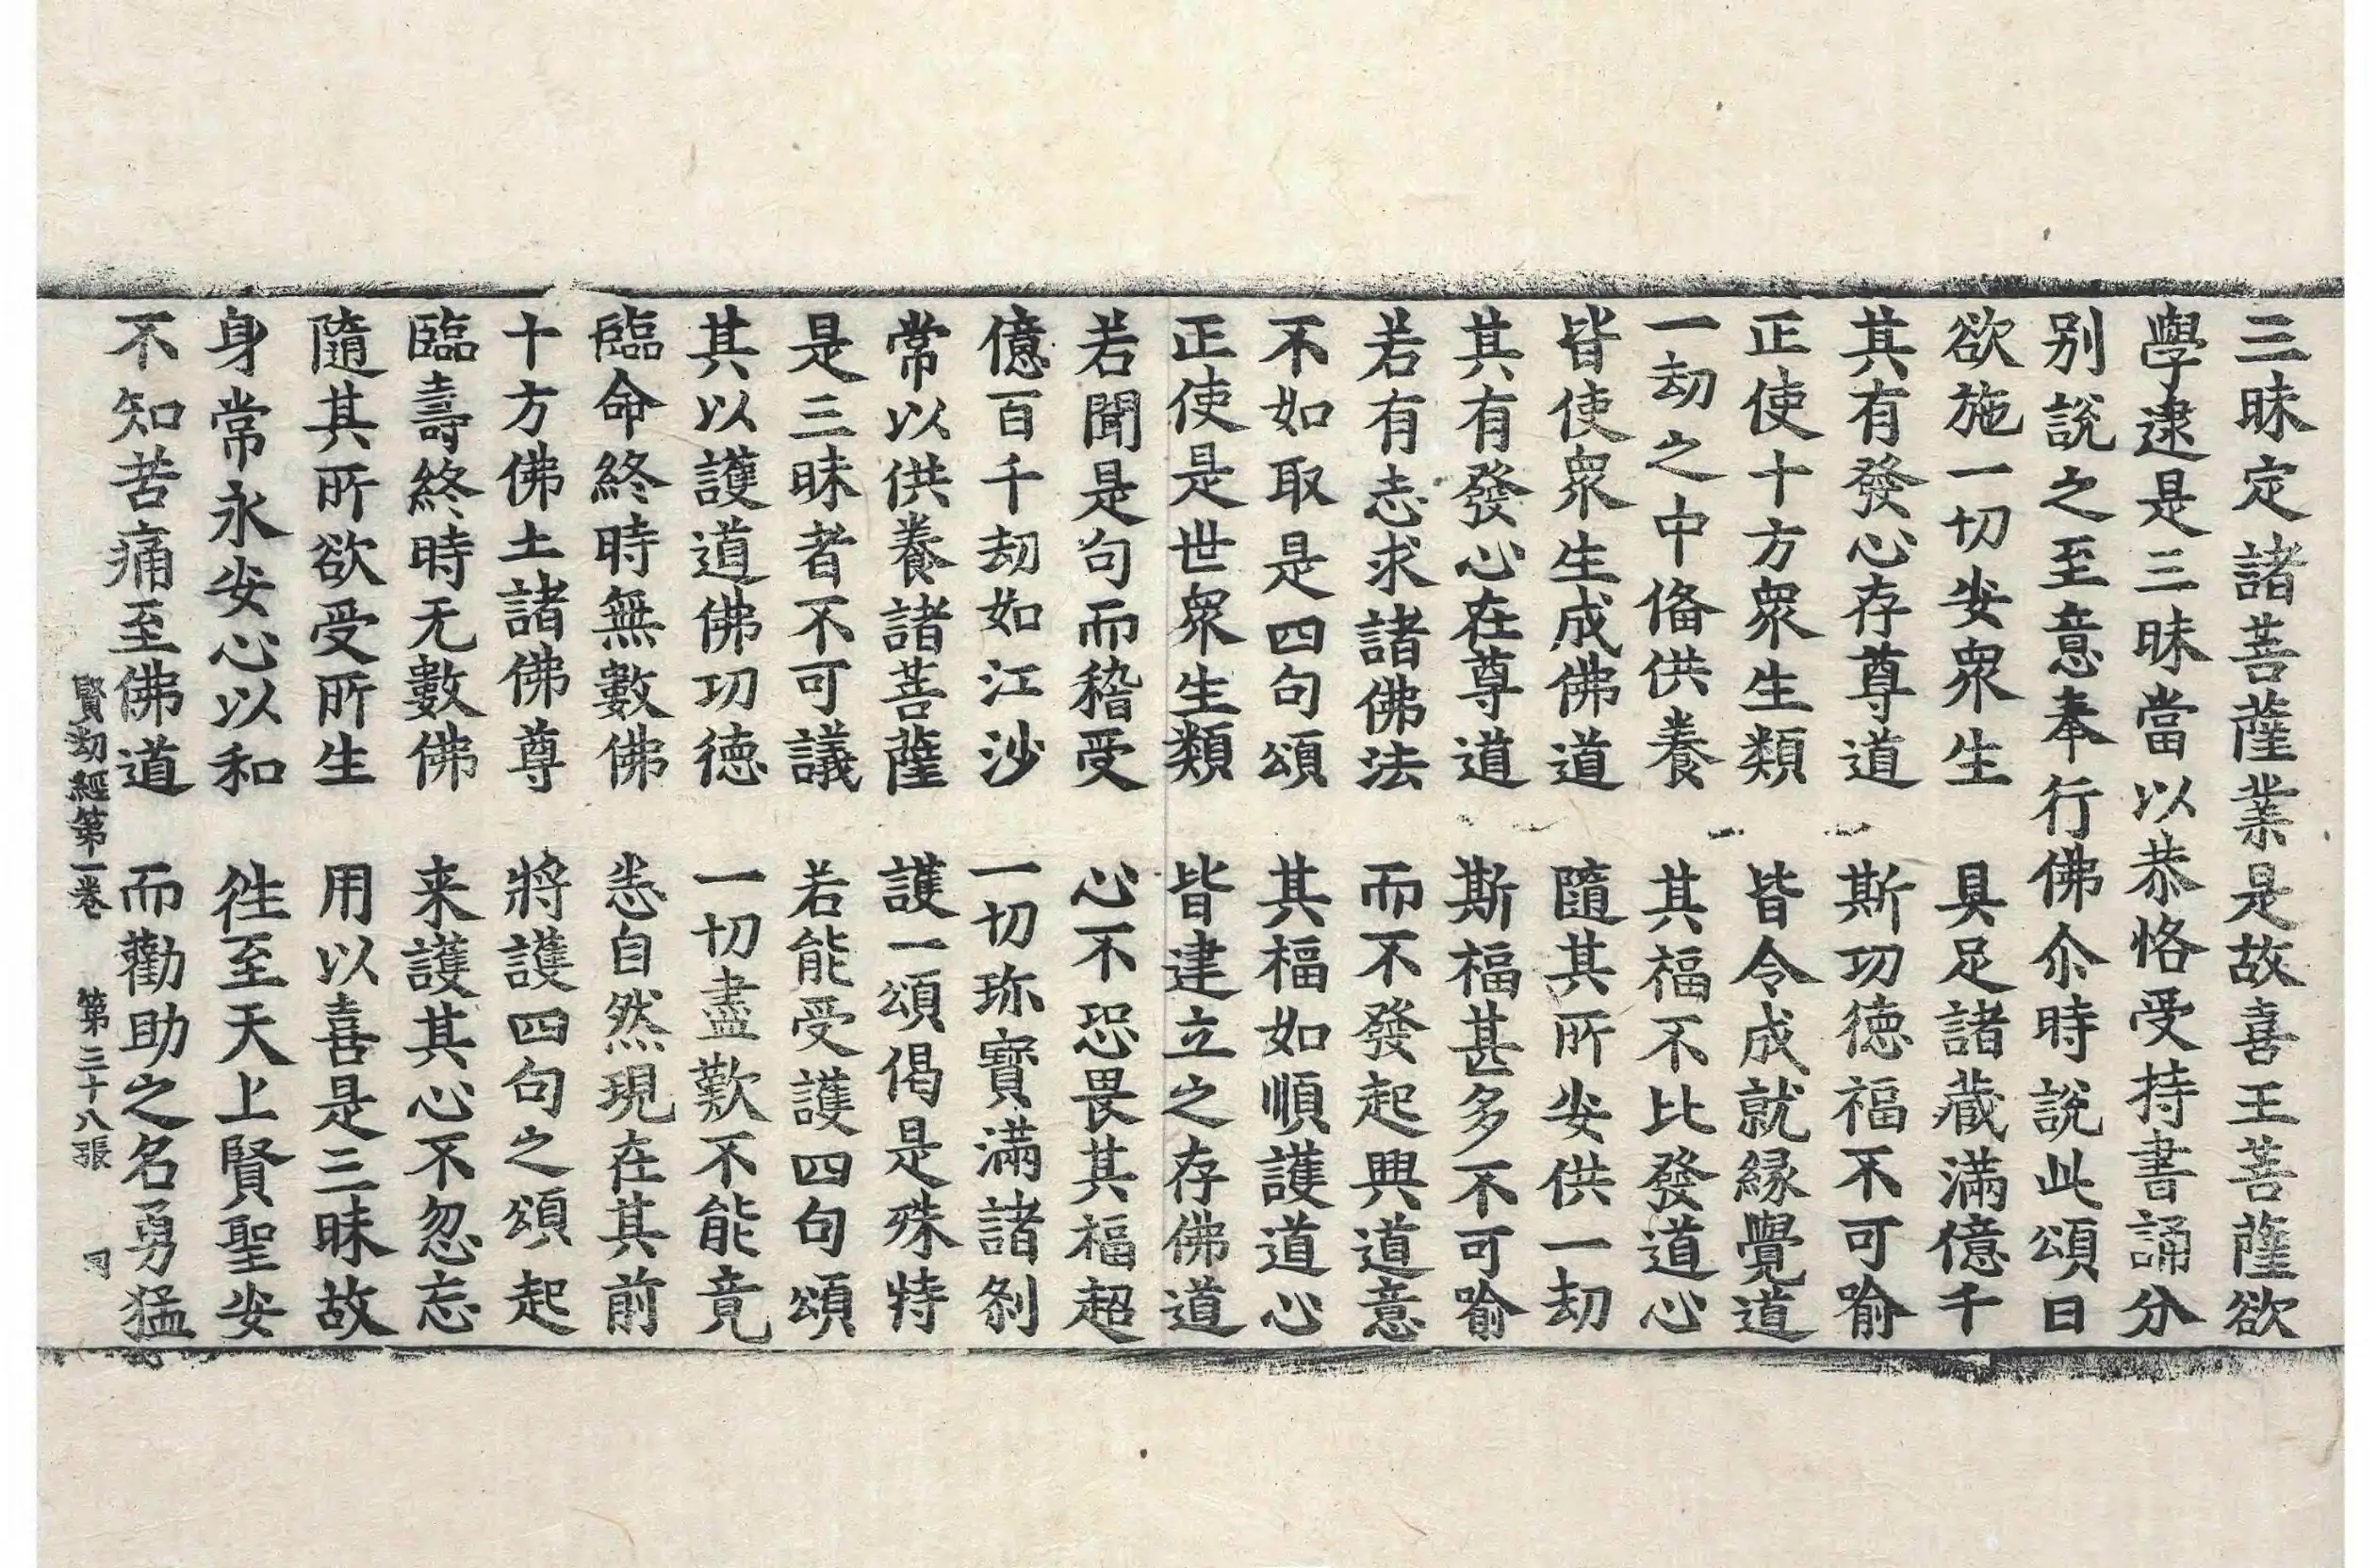 三昧定諸菩薩業是故喜王菩薩欲
學逮是三昧當以恭恪受持書誦分
别說之至意奉行佛尒時說此頌曰
欲施一切安衆生　具足諸藏滿億千
其有發心存尊道　斯功德福不可喻
正使十方衆生類　皆令成就緣覺道
一劫之中俻供養　其福不比發道心
皆使衆生成佛道　隨其所安供一劫
其有發心在尊道　斯福甚多不可喻
若有志求諸佛法　而不發起興道意
不如取是四句頌　其福如順護道心
正使是世衆生類　皆建立之存佛道
若聞是句而稽受　心不恐畏其福超
億百千劫如江沙　一切珎寳滿諸刹
常以供養諸菩薩　護一頌偈是殊特
是三昧者不可議　若能受護四句頌
其以護道佛功德　一切盡歎不能竟
臨命終時無數佛　悉自然現在其前
十方佛土諸佛尊　將護四句之頌起
臨壽終時无數佛　来護其心不忽忘
隨其所欲受所生　用以喜是三昧故
身常永安心以和　徃至天上賢聖安
不知苦痛至佛道　而勸助之名勇猛
賢劫經第一卷　第三十八張